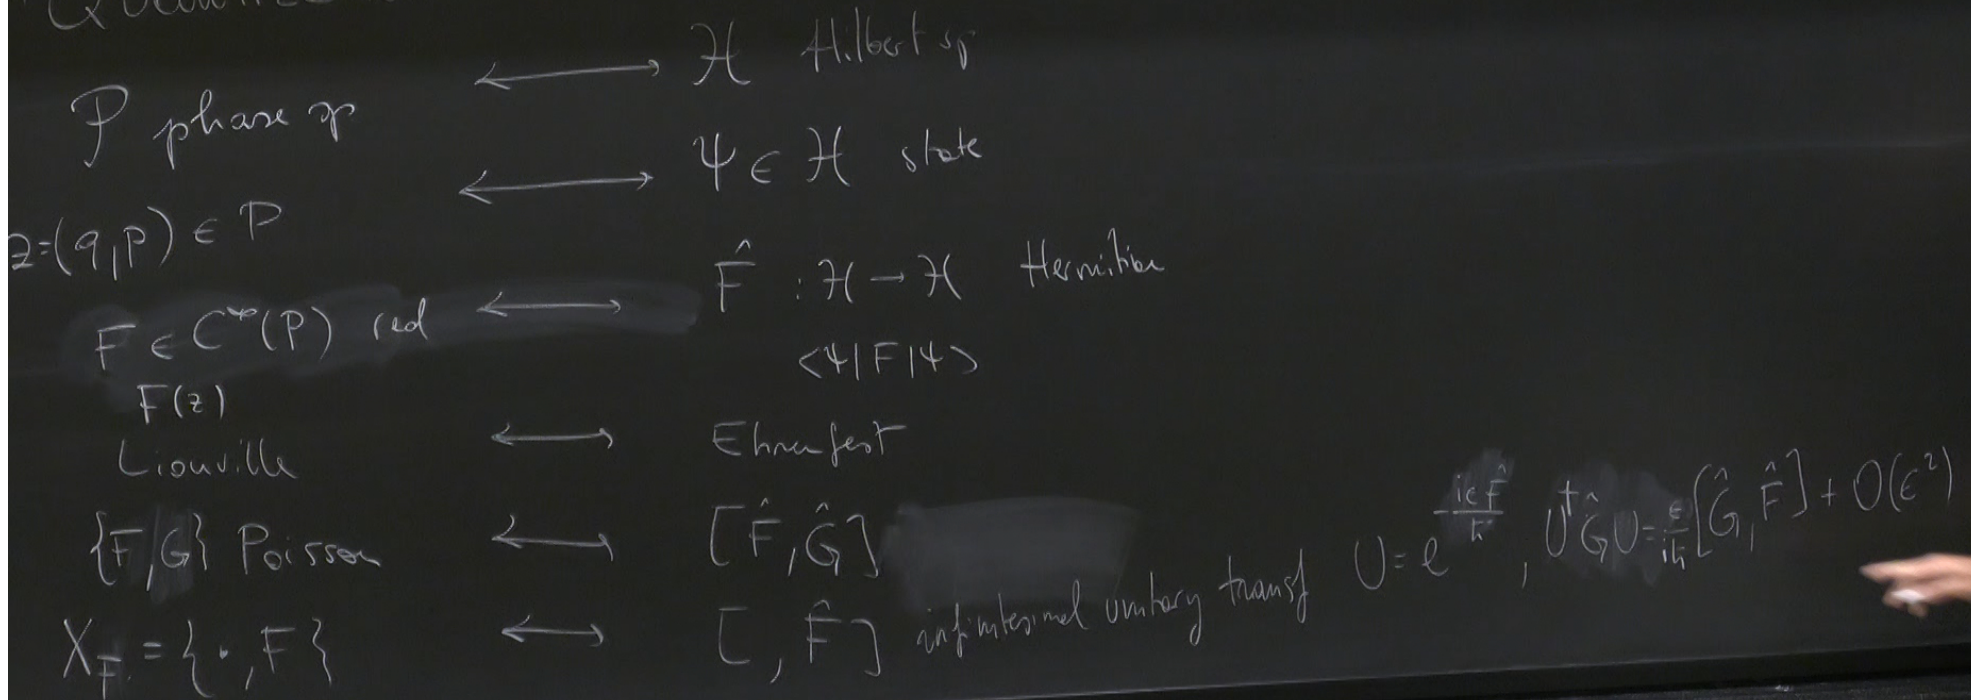 P phase sp ⟷ H Hilbert sp
z=(q,p) ∈ P ⟷ Ψ ∈ H state
F ∈ C^∞(P) real ⟷ F̂ : H → H Hermitian
F(z) <Ψ|F|Ψ>
Liouville ⟷ Ehrenfest
{F,G} Poisson ⟷ [F̂,Ĝ]
X_F = {·,F} ⟷ [ ,F̂] infinitesimal unitary transf U=e^{-iεF̂/ħ}, U†ĜU=ε/iħ[Ĝ,F̂]+O(ε²)